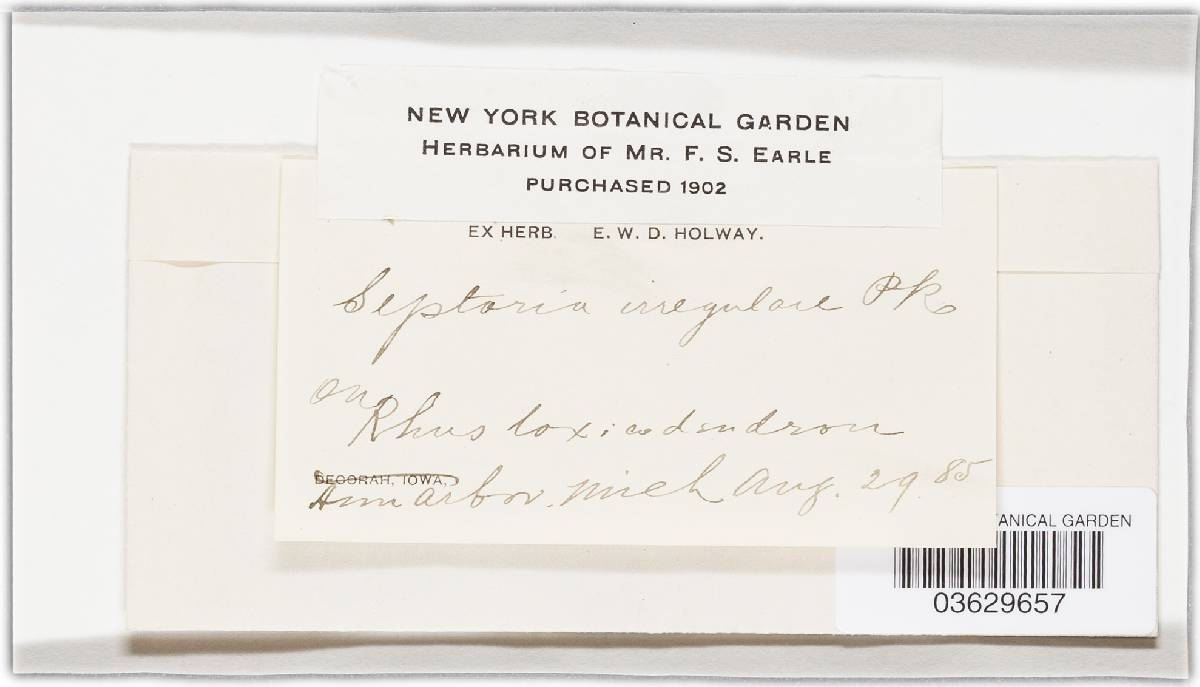 NEW YORK BOTANICAL GARDEN
HERBARIUM OF MR. F. S. EARLE
PURCHASED 1902
EX HERB. E. W. D. HOLWAY.
Septoria irregulare Pk
on
Rhus toxicodendron
DECORAH, IOWA,
Ann arbor. Mich Aug. 29. 85
TANICAL GARDEN
03629657